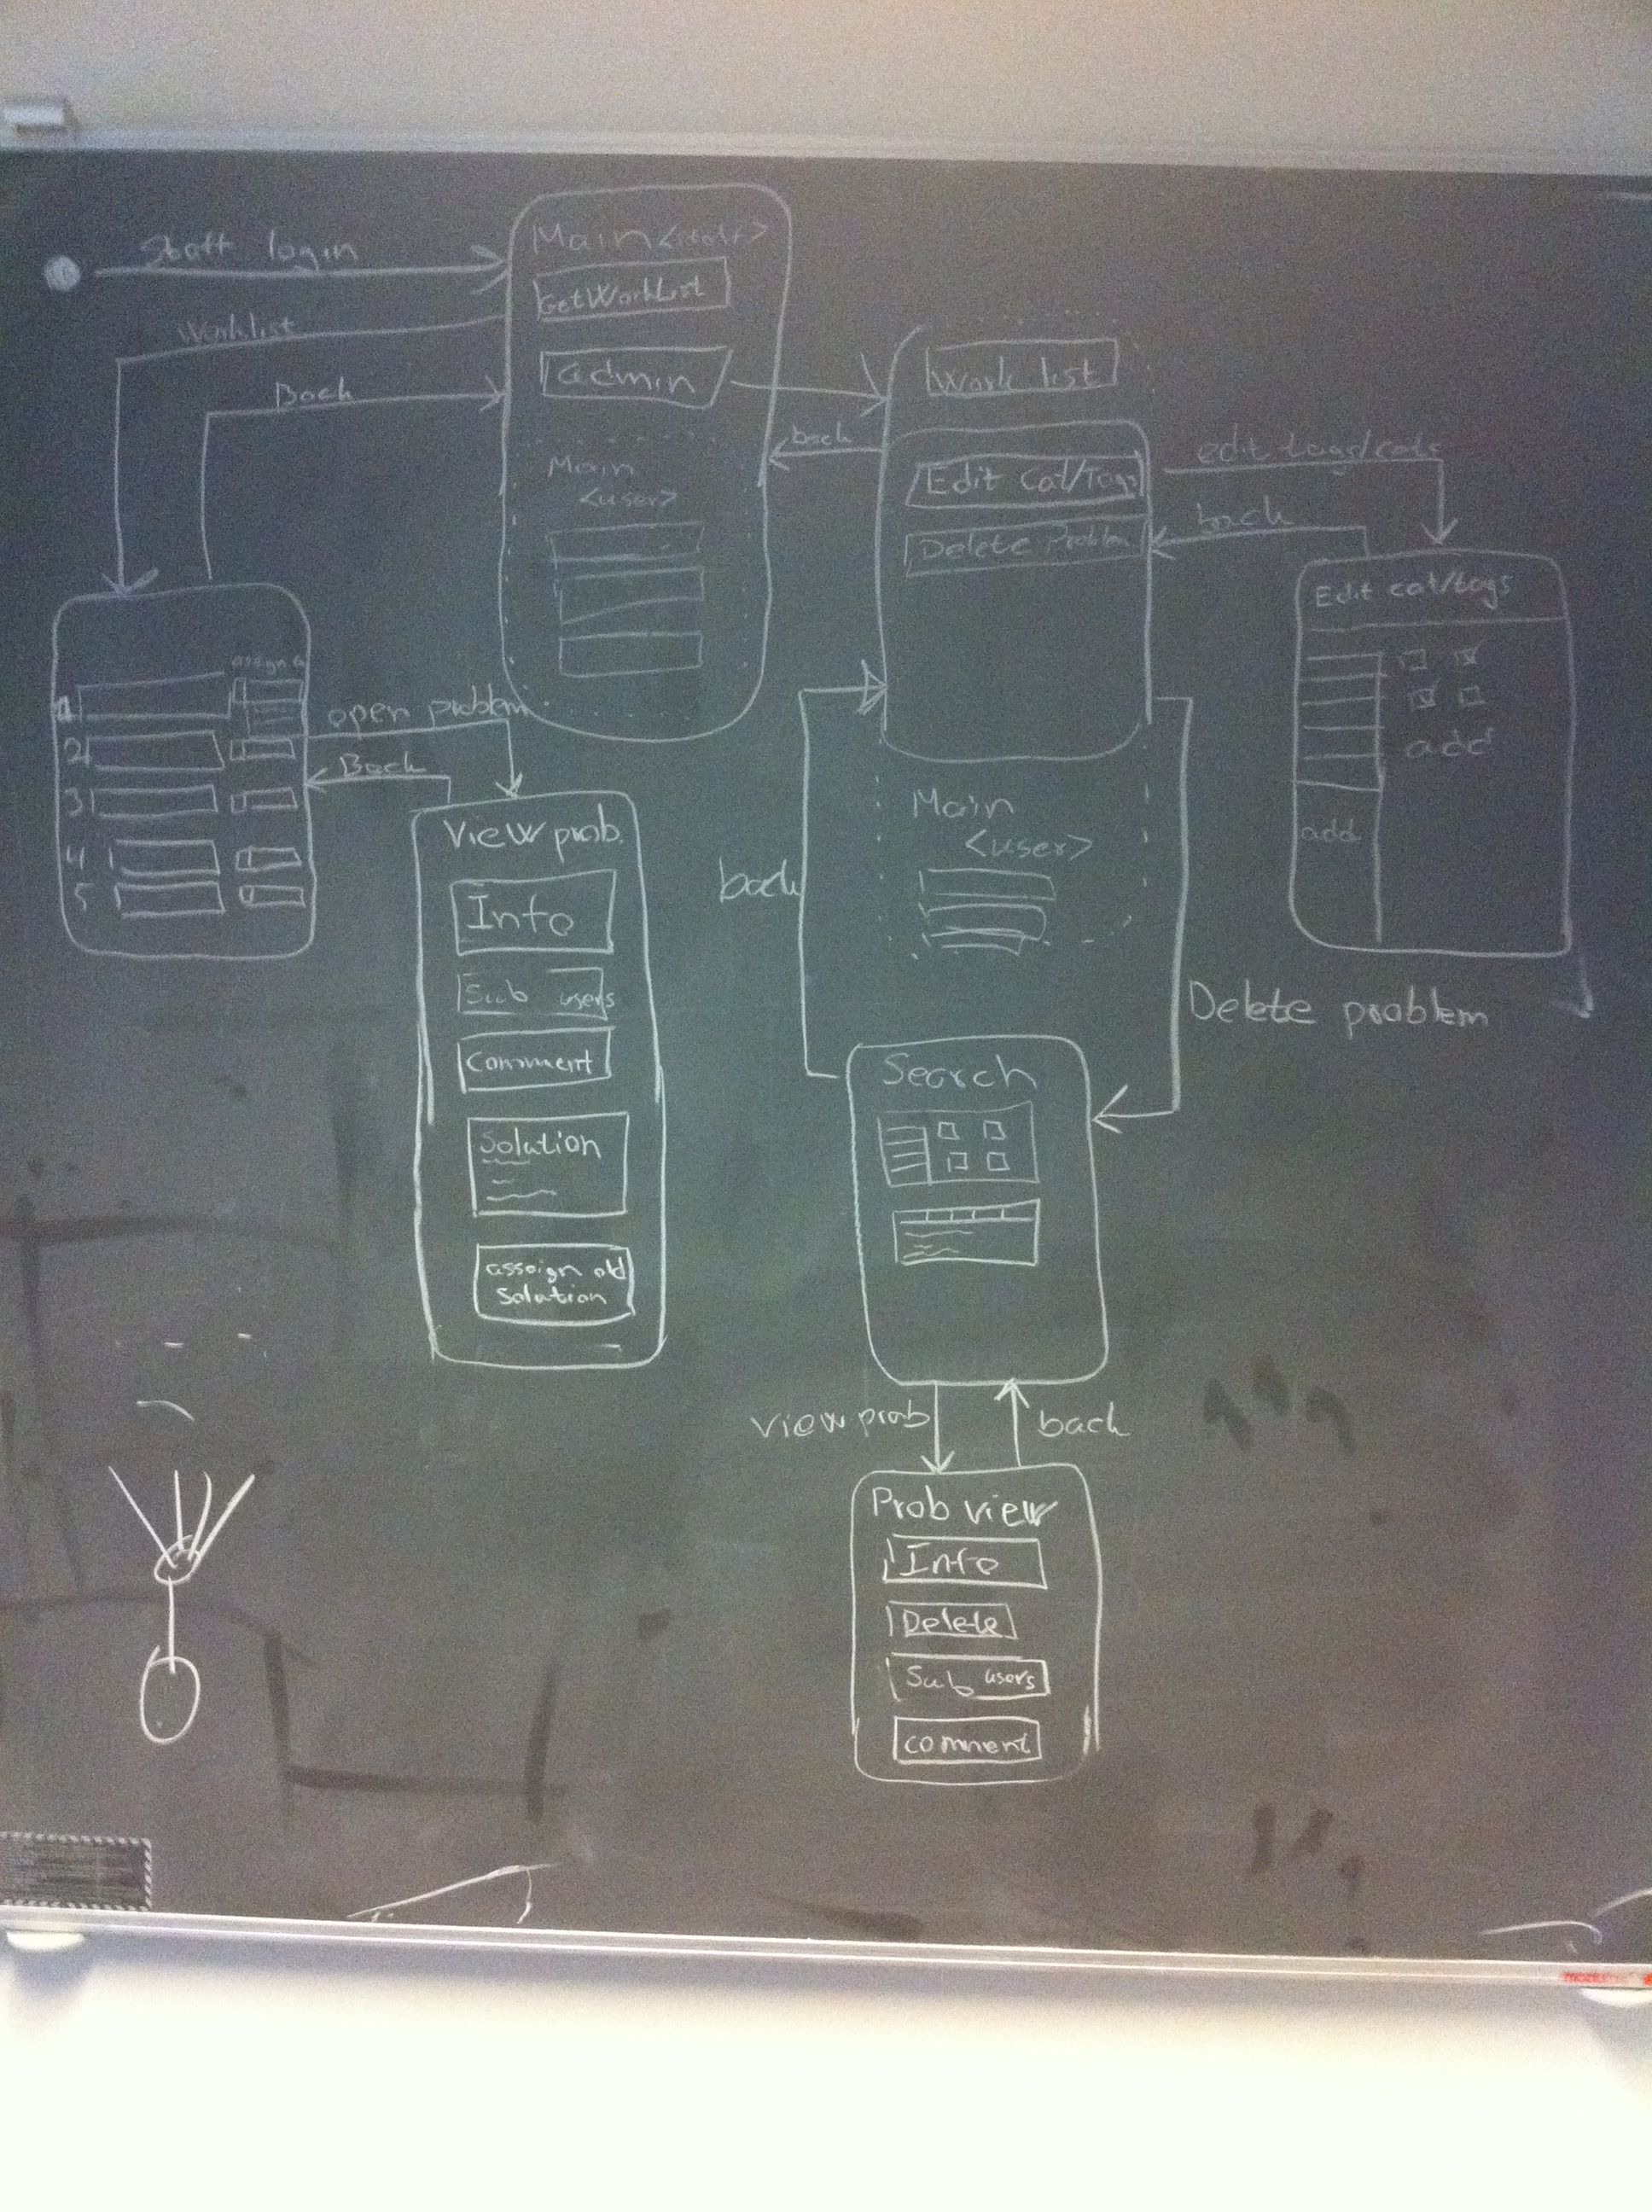 Staff login
Main <staff>
GetWorkList
Worklist
admin
Back
Main
<user>
Work list
back
Edit Cat/Tags
Delete Problem
edit tags/cats
back
Edit cat/tags
add
add
assign
1
2
3
4
5
open problem
Back
View prob.
Info
Sub users
Comment
Solution
assoign old
Solution
Main
<user>
back
Delete problem
Search
view prob
back
Prob view
Info
Delete
Sub users
comment